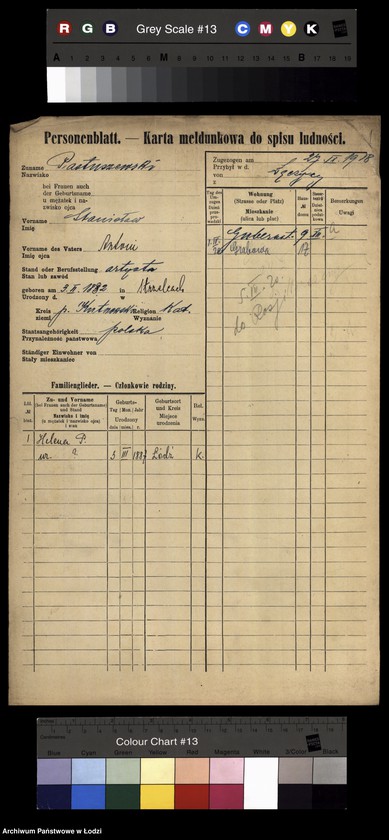 R G B Grey Scale #13 C M Y K
A M B
Personenblatt. — Karta meldunkowa do spisu ludności.
Zuname
Nazwisko
Pastuszewski
bei Frauen auch
der Geburtsname
u mężatek i na-
zwisko ojca
Vorname
Imię
Stanisław
Vorname des Vaters
Imię ojca
Antoni
Stand oder Berufsstellung
Stan lub zawód
artysta
geboren am 3. II. 1882 in
Urodzony d. w
Kreis p. Kutnowski Religion Kat.
ziemi Wyznanie
Staatsangehörigkeit
Przynależność państwowa
polska
Ständiger Einwohner von
Stały mieszkaniec
Zugezogen am 29 IX 1918
Przybył w d.
von
z
Wohnung
(Strasse oder Platz)
Mieszkanie
(ulica lub plac)
Bemerkungen
Uwagi
Gubernat. 9
Grabowa 17
5. IV. 20
do
Familienglieder. — Członkowie rodziny.
Zu- und Vorname
(bei Frauen auch der Geburtsname)
und Stand
Nazwisko i imię
(u mężatek i nazwisko ojca)
i stan
Geburts-
Tag Mon. Jahr
Urodzony
dnia mies. r.
Geburtsort
und Kreis
Miejsce
urodzenia
Rel.
Wyzn.
1 Helena P.
ur. ? 3 III 1887 Łódź k.
Colour Chart #13
Blue Cyan Green Yellow Red Magenta White 3/Color Black
Archiwum Państwowe w Łodzi